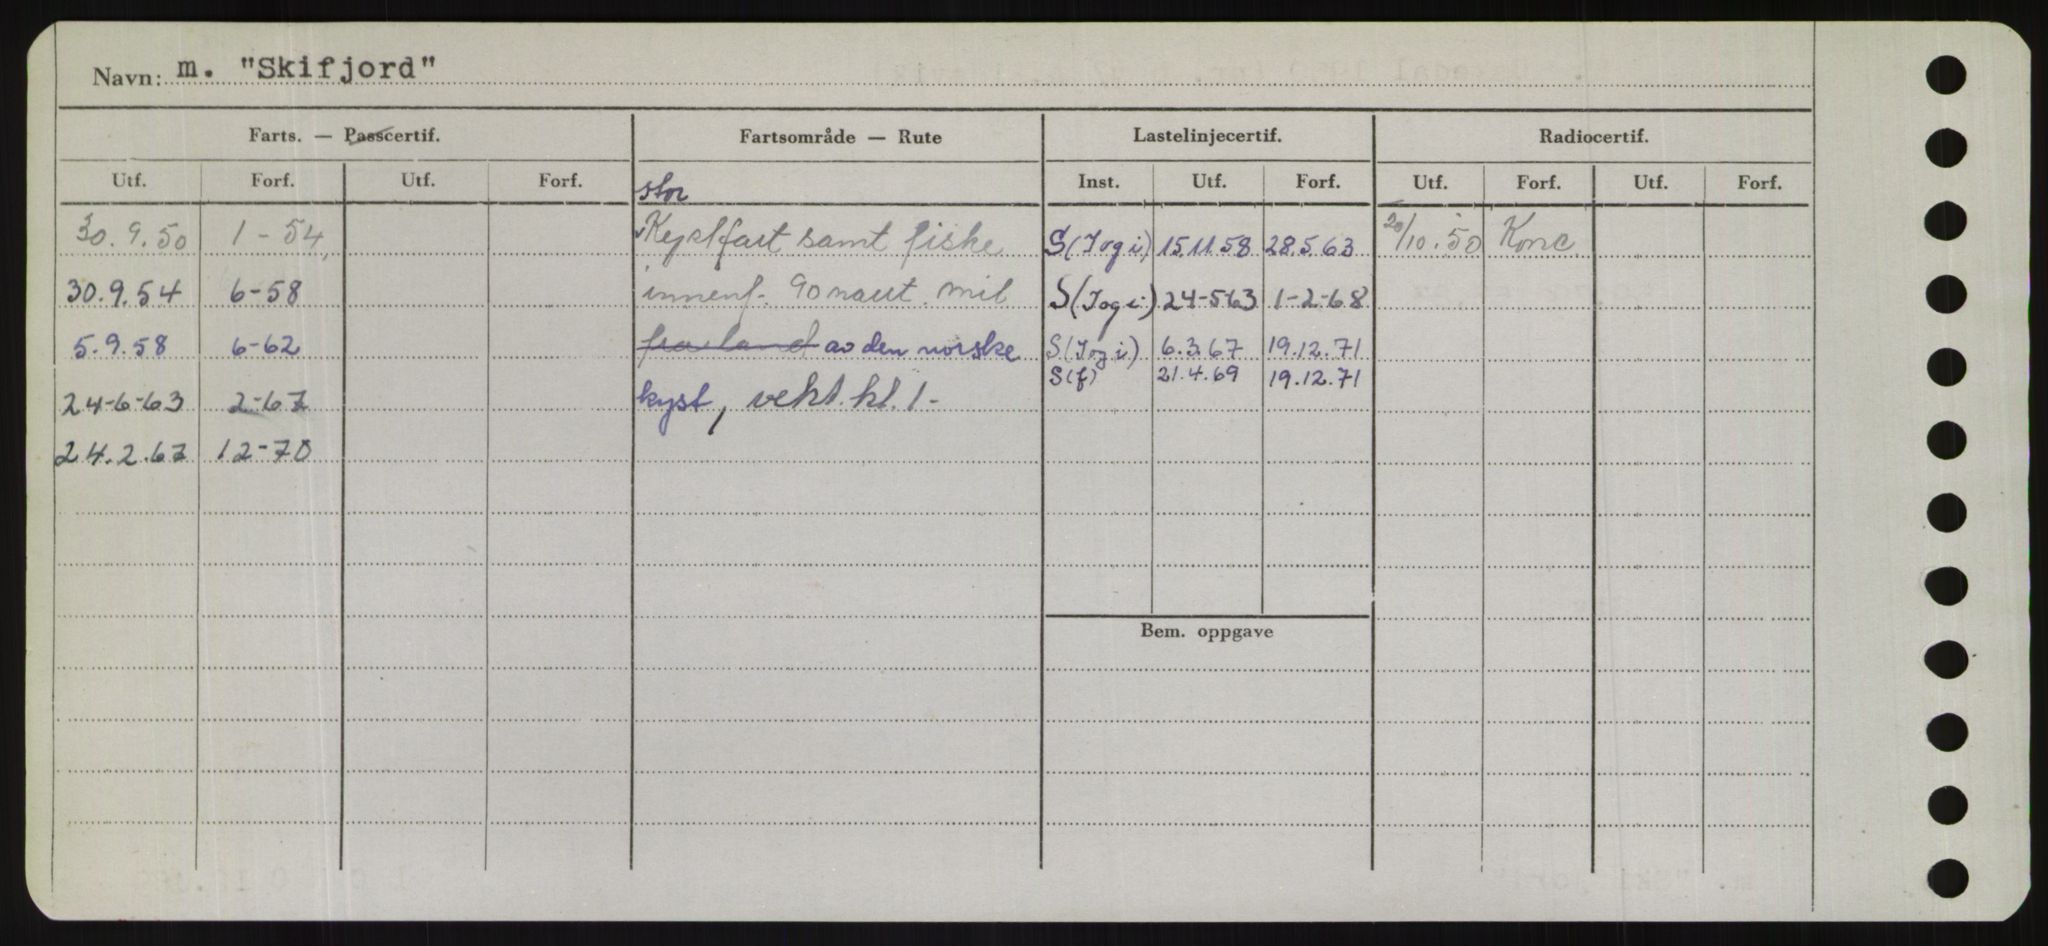 Navn: m. "Skifjord"
Farts. — Passcertif. Fartsområde — Rute Lastelinjecertif. Radiocertif.
Utf. Forf. Utf. Forf. Inst. Utf. Forf. Utf. Forf. Utf. Forf.
stor
30.9.50 1-54, Kystfart samt fiske S(Iogi) 15.11.58 28.5.63 20/10.50 Konc.
30.9.54 6-58 innenf. 90 naut. mil S(Iogi) 24-5-63 1-2-68
5.9.58 6-62 fra land av den norske S(Iogi) 6.3.67 19.12.71
S(f) 21.4.69 19.12.71
24-6-63 2-67 kyst, vekt.kl.1-
24.2.67 12-70
Bem. oppgave